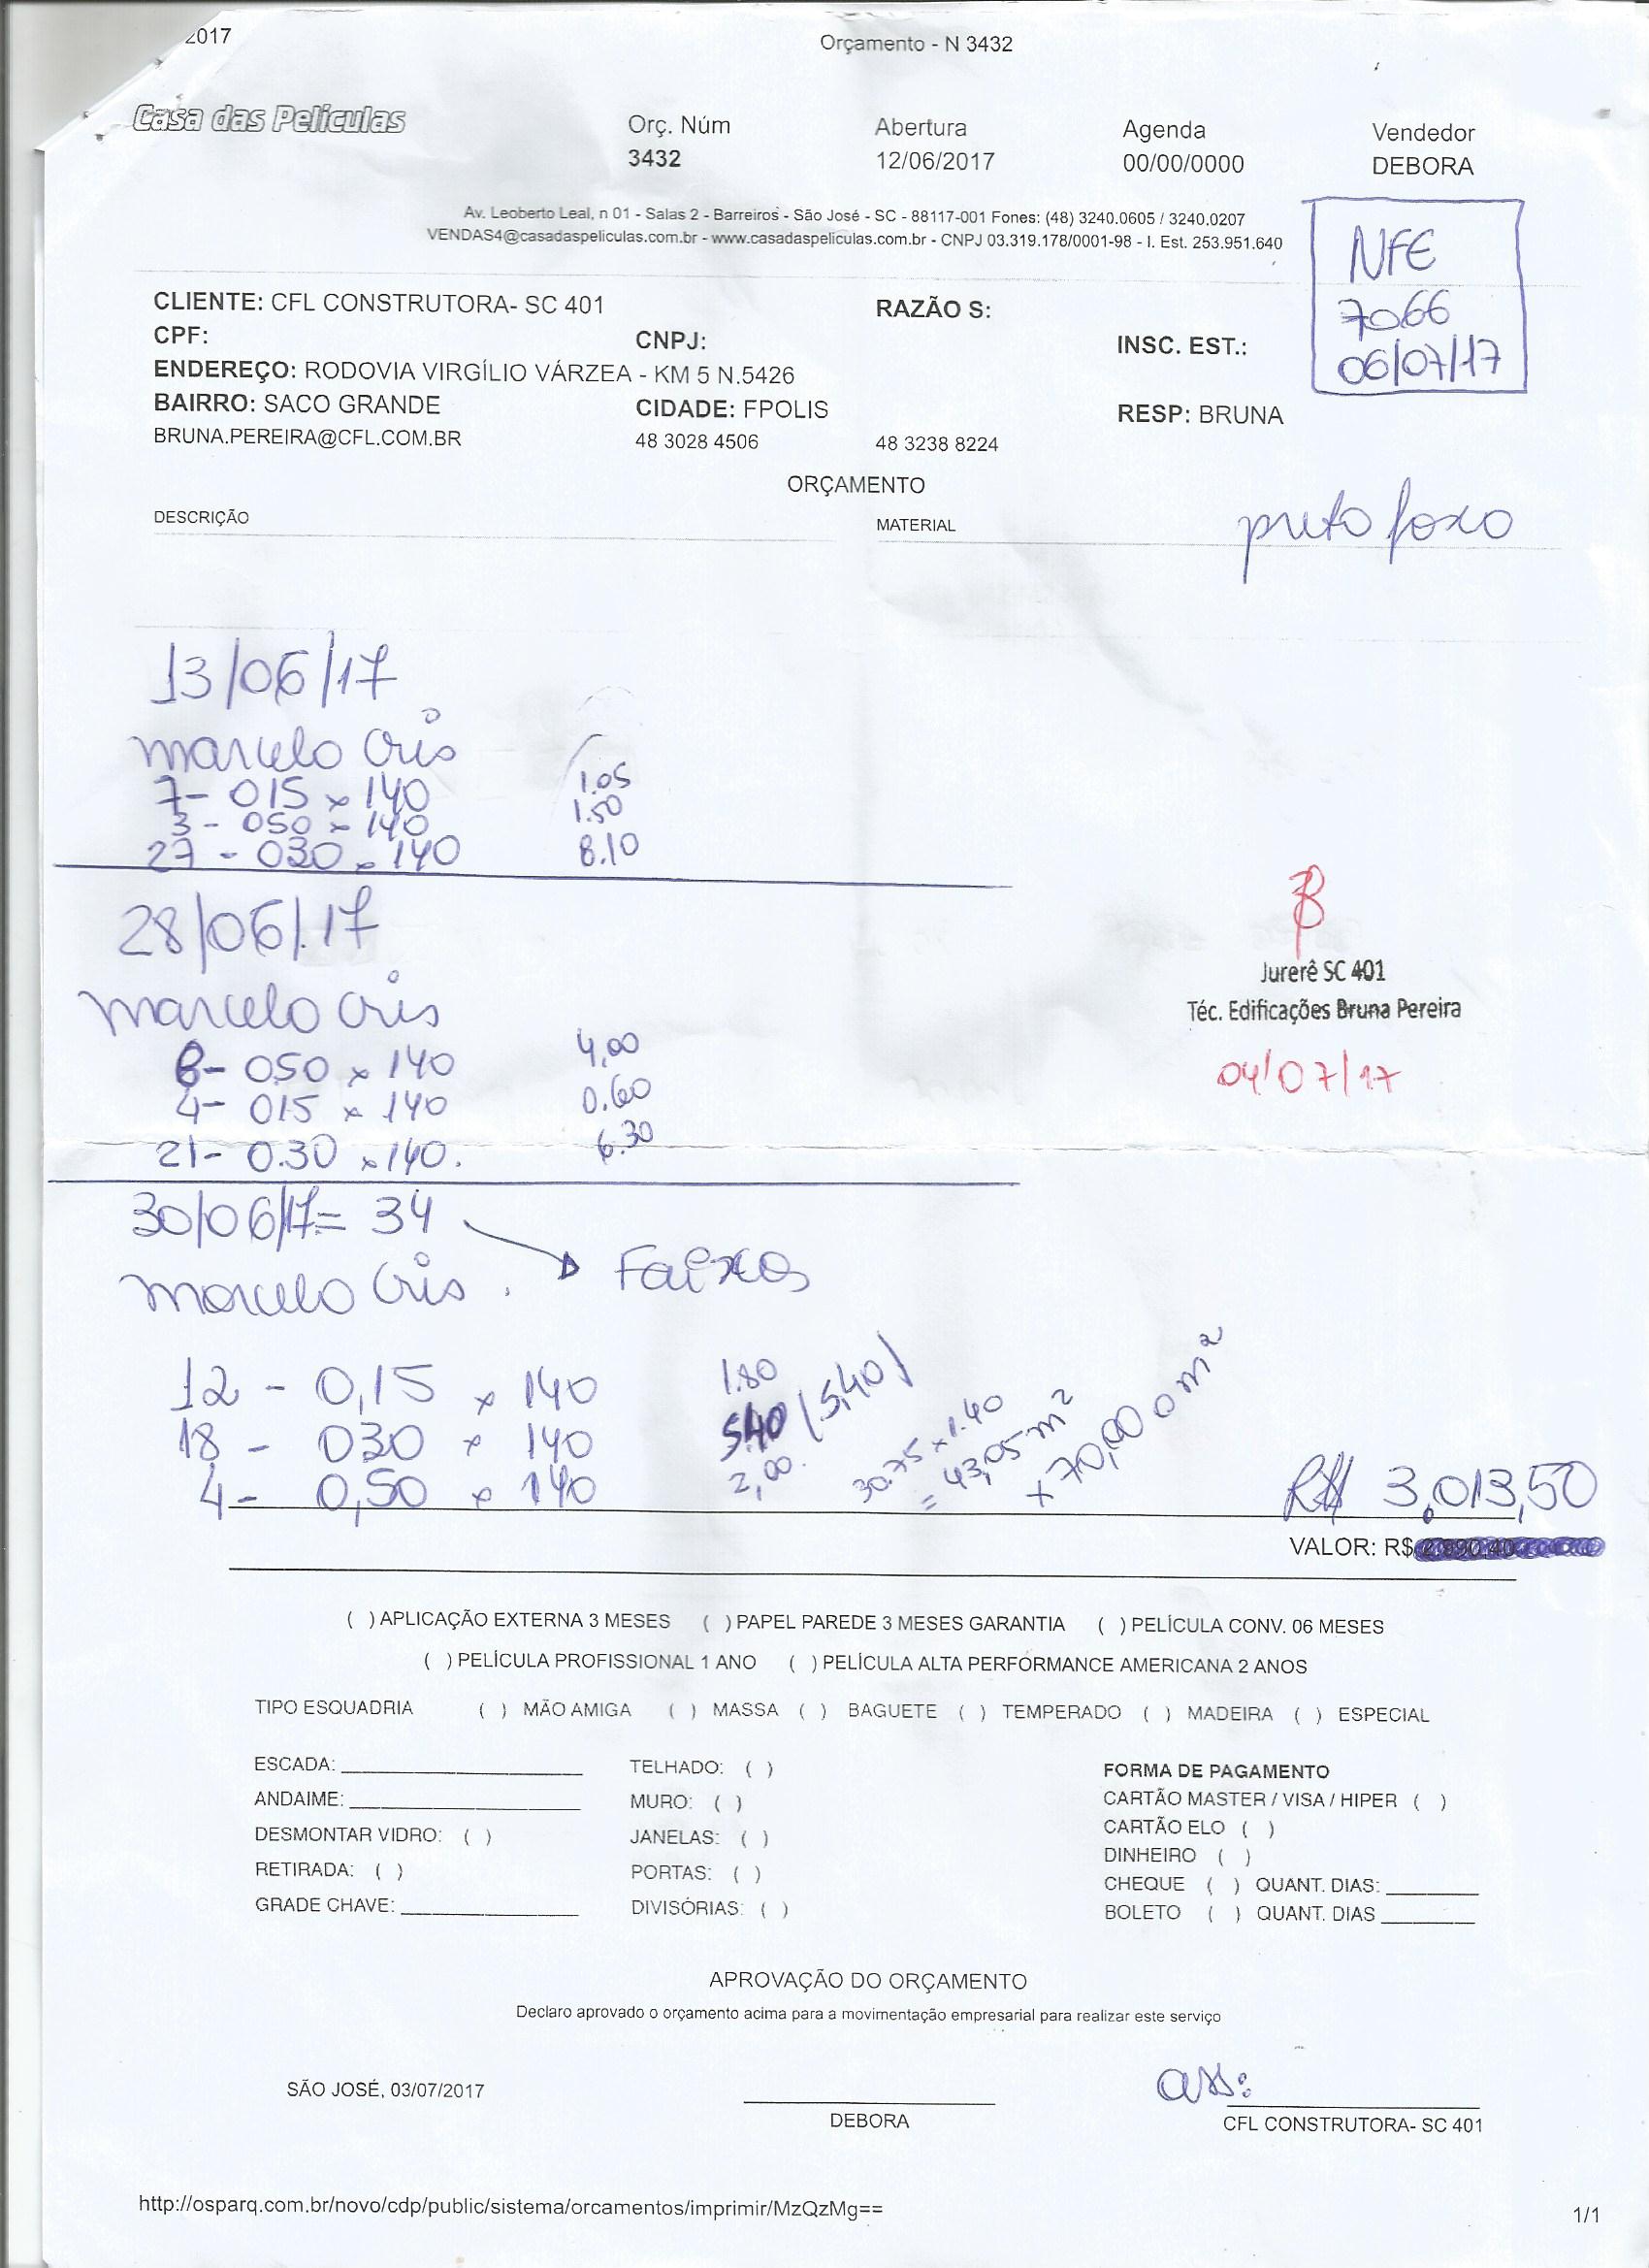 2017
Orçamento - N 3432
Casa das Películas
Orç. Núm
3432
Abertura
12/06/2017
Agenda
00/00/0000
Vendedor
DEBORA
Av. Leoberto Leal, n 01 - Salas 2 - Barreiros - São José - SC - 88117-001 Fones: (48) 3240.0605 / 3240.0207
VENDAS4@casadaspeliculas.com.br - www.casadaspeliculas.com.br - CNPJ 03.319.178/0001-98 - I. Est. 253.951.640
NFE
7066
06/07/17
CLIENTE: CFL CONSTRUTORA- SC 401
RAZÃO S:
CPF:
CNPJ:
INSC. EST.:
ENDEREÇO: RODOVIA VIRGÍLIO VÁRZEA - KM 5 N.5426
BAIRRO: SACO GRANDE
CIDADE: FPOLIS
RESP: BRUNA
BRUNA.PEREIRA@CFL.COM.BR
48 3028 4506
48 3238 8224
ORÇAMENTO
DESCRIÇÃO
MATERIAL
preto foxo
13/06/17
marcelo Cris
7- 015 x 140 1.05
3 - 050 x 140 1.50
27 - 030 x 140 8.10
28/06/17
marcelo Cris
8- 050 x 140 4,00
4- 015 x 140 0.60
21- 0.30 x 140. 6.30
Jurerê SC 401
Téc. Edificações Bruna Pereira
04/07/17
30/06/17= 34
Faixas
marcelo Cris.
12 - 0,15 x 140 1.80
18 - 030 x 140 5,40 (5,40)
4- 0,50 x 140 2,00.
30.75 x 1.40
= 43,05 m²
x 70,00 o m²
R$ 3.013,50
VALOR: R$
( ) APLICAÇÃO EXTERNA 3 MESES ( ) PAPEL PAREDE 3 MESES GARANTIA ( ) PELÍCULA CONV. 06 MESES
( ) PELÍCULA PROFISSIONAL 1 ANO ( ) PELÍCULA ALTA PERFORMANCE AMERICANA 2 ANOS
TIPO ESQUADRIA ( ) MÃO AMIGA ( ) MASSA ( ) BAGUETE ( ) TEMPERADO ( ) MADEIRA ( ) ESPECIAL
ESCADA:
ANDAIME:
DESMONTAR VIDRO: ( )
RETIRADA: ( )
GRADE CHAVE:
TELHADO: ( )
MURO: ( )
JANELAS: ( )
PORTAS: ( )
DIVISÓRIAS: ( )
FORMA DE PAGAMENTO
CARTÃO MASTER / VISA / HIPER ( )
CARTÃO ELO ( )
DINHEIRO ( )
CHEQUE ( ) QUANT. DIAS:
BOLETO ( ) QUANT. DIAS
APROVAÇÃO DO ORÇAMENTO
Declaro aprovado o orçamento acima para a movimentação empresarial para realizar este serviço
SÃO JOSÉ, 03/07/2017
DEBORA
ass:
CFL CONSTRUTORA- SC 401
http://osparq.com.br/novo/cdp/public/sistema/orcamentos/imprimir/MzQzMg==
1/1